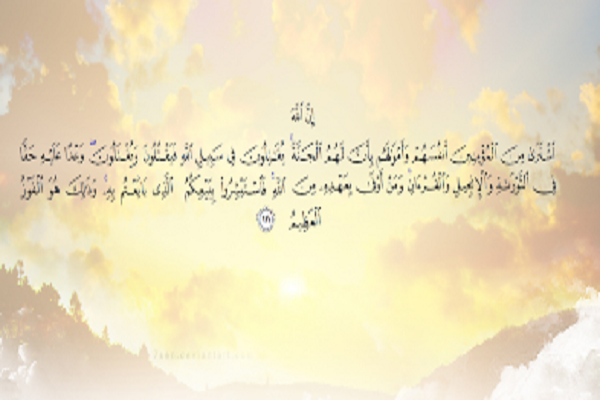 إِنَّ ٱللَّهَ
ٱشْتَرَىٰ مِنَ ٱلْمُؤْمِنِينَ أَنفُسَهُمْ وَأَمْوَٰلَهُم بِأَنَّ لَهُمُ ٱلْجَنَّةَ ۚ يُقَٰتِلُونَ فِى سَبِيلِ ٱللَّهِ فَيَقْتُلُونَ وَيُقْتَلُونَ ۖ وَعْدًا عَلَيْهِ حَقًّا
فِى ٱلتَّوْرَىٰةِ وَٱلْإِنجِيلِ وَٱلْقُرْءَانِ ۚ وَمَنْ أَوْفَىٰ بِعَهْدِهِۦ مِنَ ٱللَّهِ ۚ فَٱسْتَبْشِرُوا۟ بِبَيْعِكُمُ ٱلَّذِى بَايَعْتُم بِهِۦ ۚ وَذَٰلِكَ هُوَ ٱلْفَوْزُ
ٱلْعَظِيمُ ﴿١١١﴾